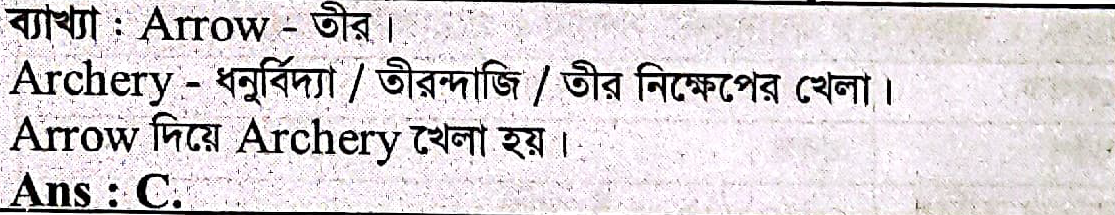 ব্যাখ্যা : Arrow - তীর ।
Archery - ধনুর্বিদ্যা / তীরন্দাজি / তীর নিক্ষেপের খেলা ।
Arrow দিয়ে Archery খেলা হয় ।
Ans : C.